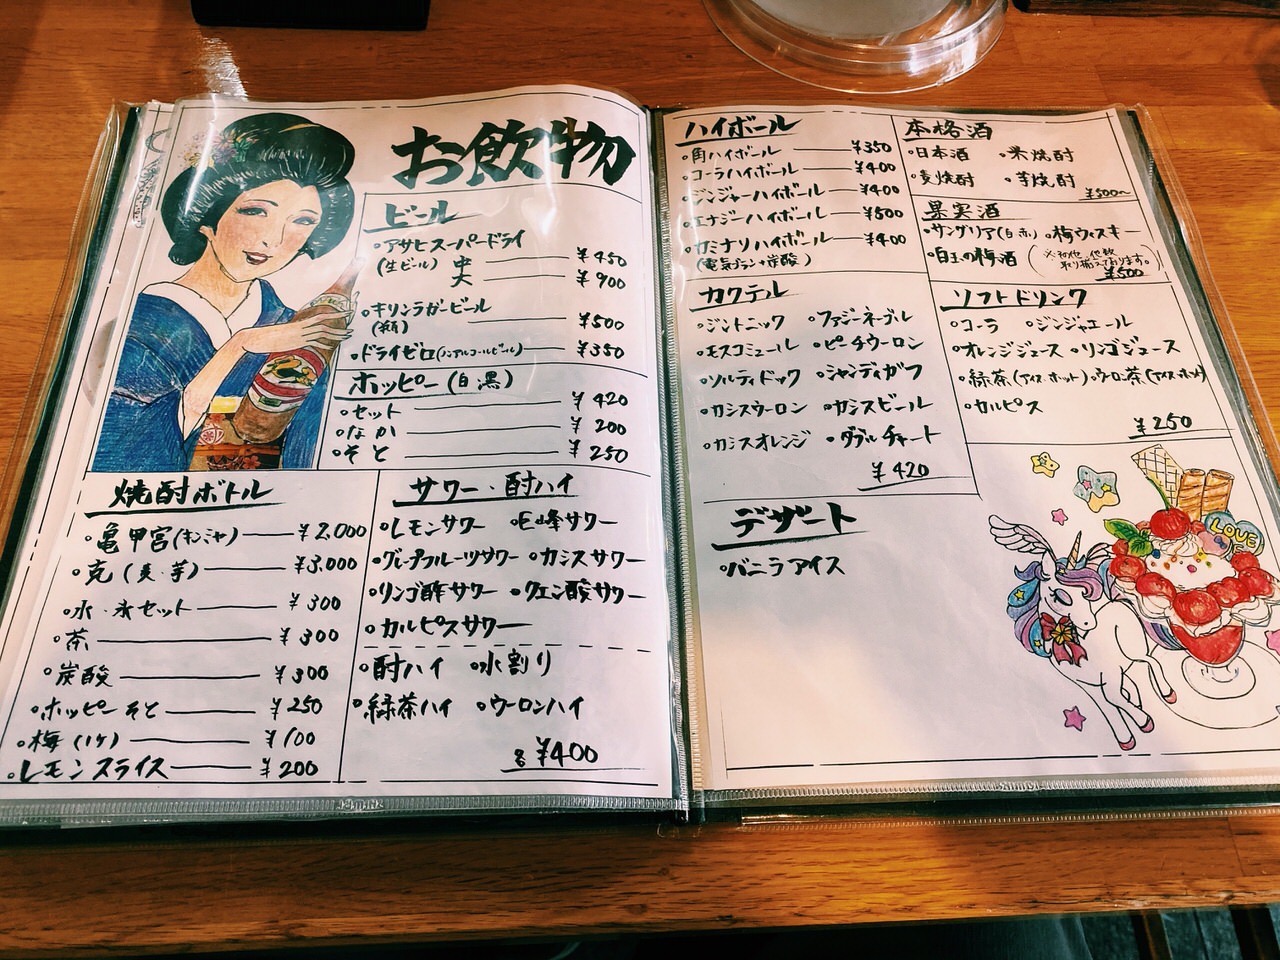 お飲物
ビール
・アサヒスーパードライ
(生ビール) 中 ¥450
大 ¥900
・キリンラガービール
¥500
・ドライゼロ(ノンアルコールビール) ¥350
ホッピー(白.黒)
・セット ¥420
・なか ¥200
・そと ¥250
焼酎ボトル
・亀甲宮(キンミヤ) ¥2,000
・克(麦.芋) ¥3,000
・水・氷セット ¥300
・茶 ¥300
・炭酸 ¥300
・ホッピーそと ¥250
・梅(1ケ) ¥100
・レモンスライス ¥200
サワー・酎ハイ
・レモンサワー ・巨峰サワー
・グレープフルーツサワー ・カシスサワー
・リンゴ酢サワー ・クエン酸サワー
・カルピスサワー
・酎ハイ ・水割り
・緑茶ハイ ・ウーロンハイ
各¥400
ハイボール
・角ハイボール ¥350
・コーラハイボール ¥400
・ジンジャーハイボール ¥400
・エナジーハイボール ¥500
・カミナリハイボール ¥400
(電気ブラン+炭酸)
カクテル
・ジントニック ・ファジーネーブル
・モスコミュール ・ピーチウーロン
・ソルティドック ・シャンディガフ
・カシスウーロン ・カシスビール
・カシスオレンジ ・ダブルチャート
¥420
デザート
・バニラアイス
本格酒
・日本酒 ・米焼酎
・麦焼酎 ・芋焼酎
¥500〜
果実酒
・サングリア(白.赤) ・梅ウィスキー
・白玉の梅酒
取り揃えております。
¥500
ソフトドリンク
・コーラ ・ジンジャエール
・オレンジジュース ・リンゴジュース
・緑茶(アイス・ホット) ・ウーロン茶(アイス・ホット)
・カルピス
¥250
LOVE